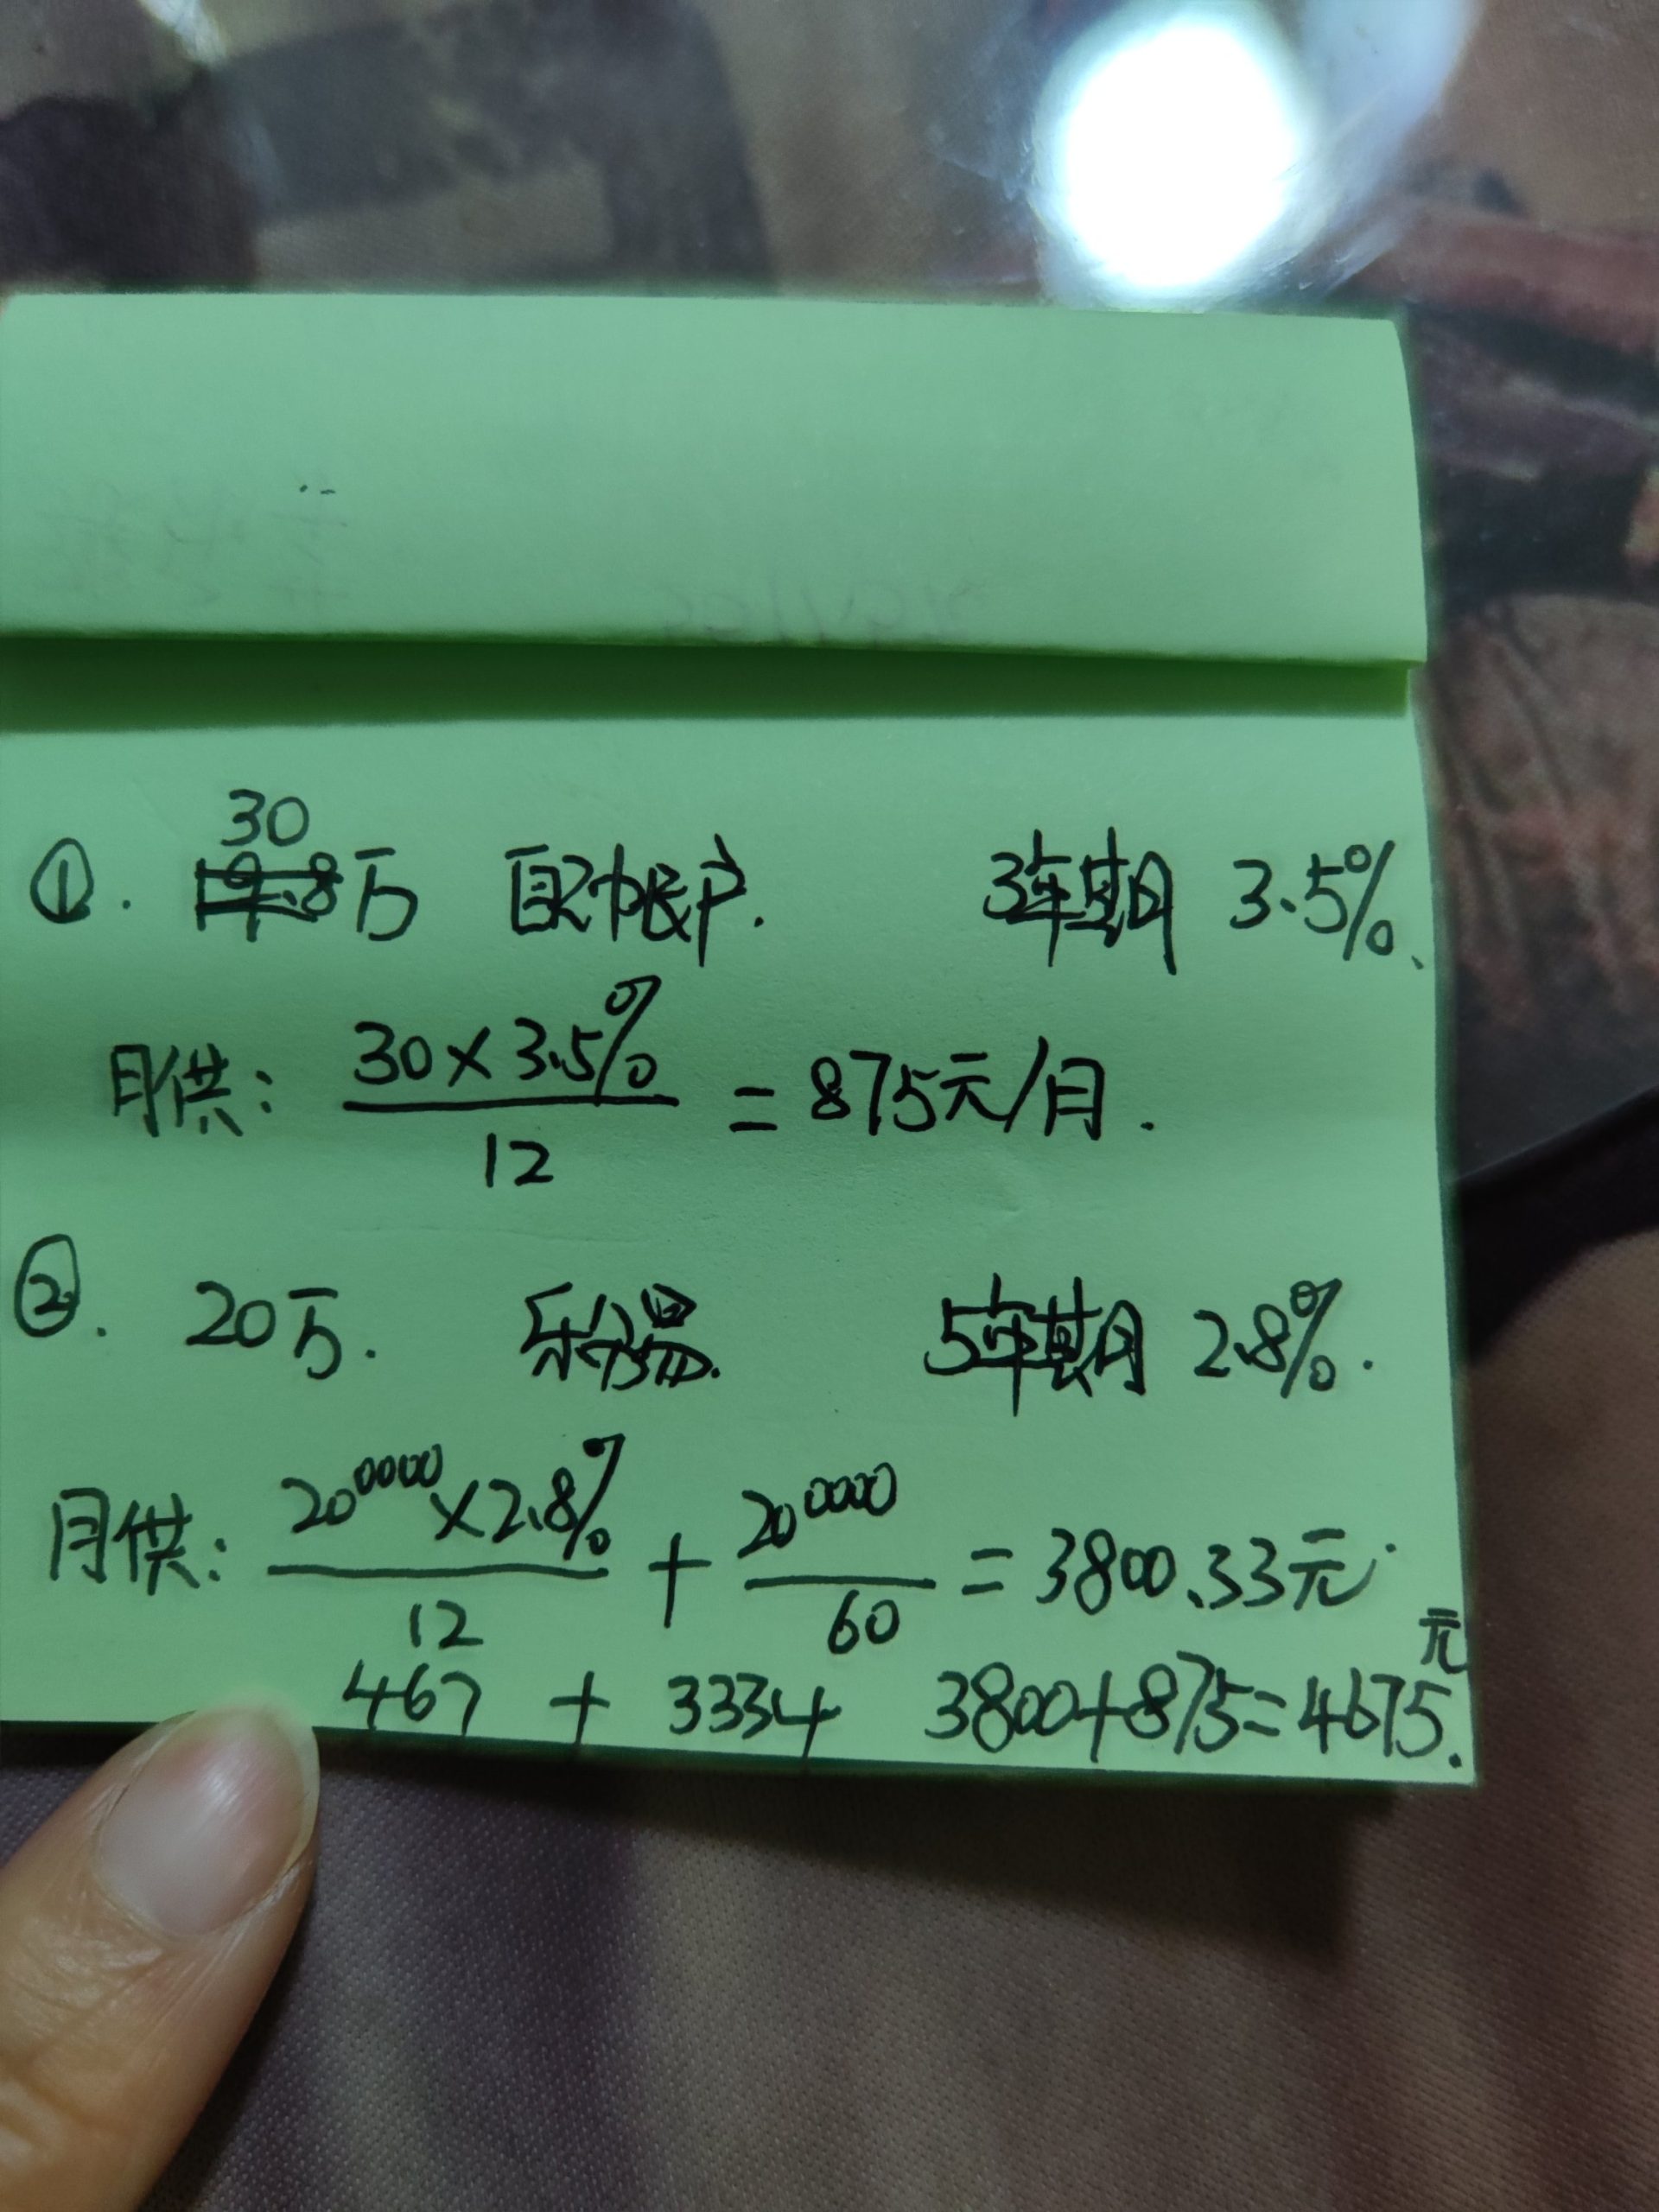 30
①. 万 帐户. 3年期 3.5%.
月供: 30×3.5%/12 = 875元/月.
②. 20万. 乐分易. 5年期 2.8%.
月供: 200000×2.8%/12 + 200000/60 = 3800.33元.
467 + 3334 3800+875=4675元.